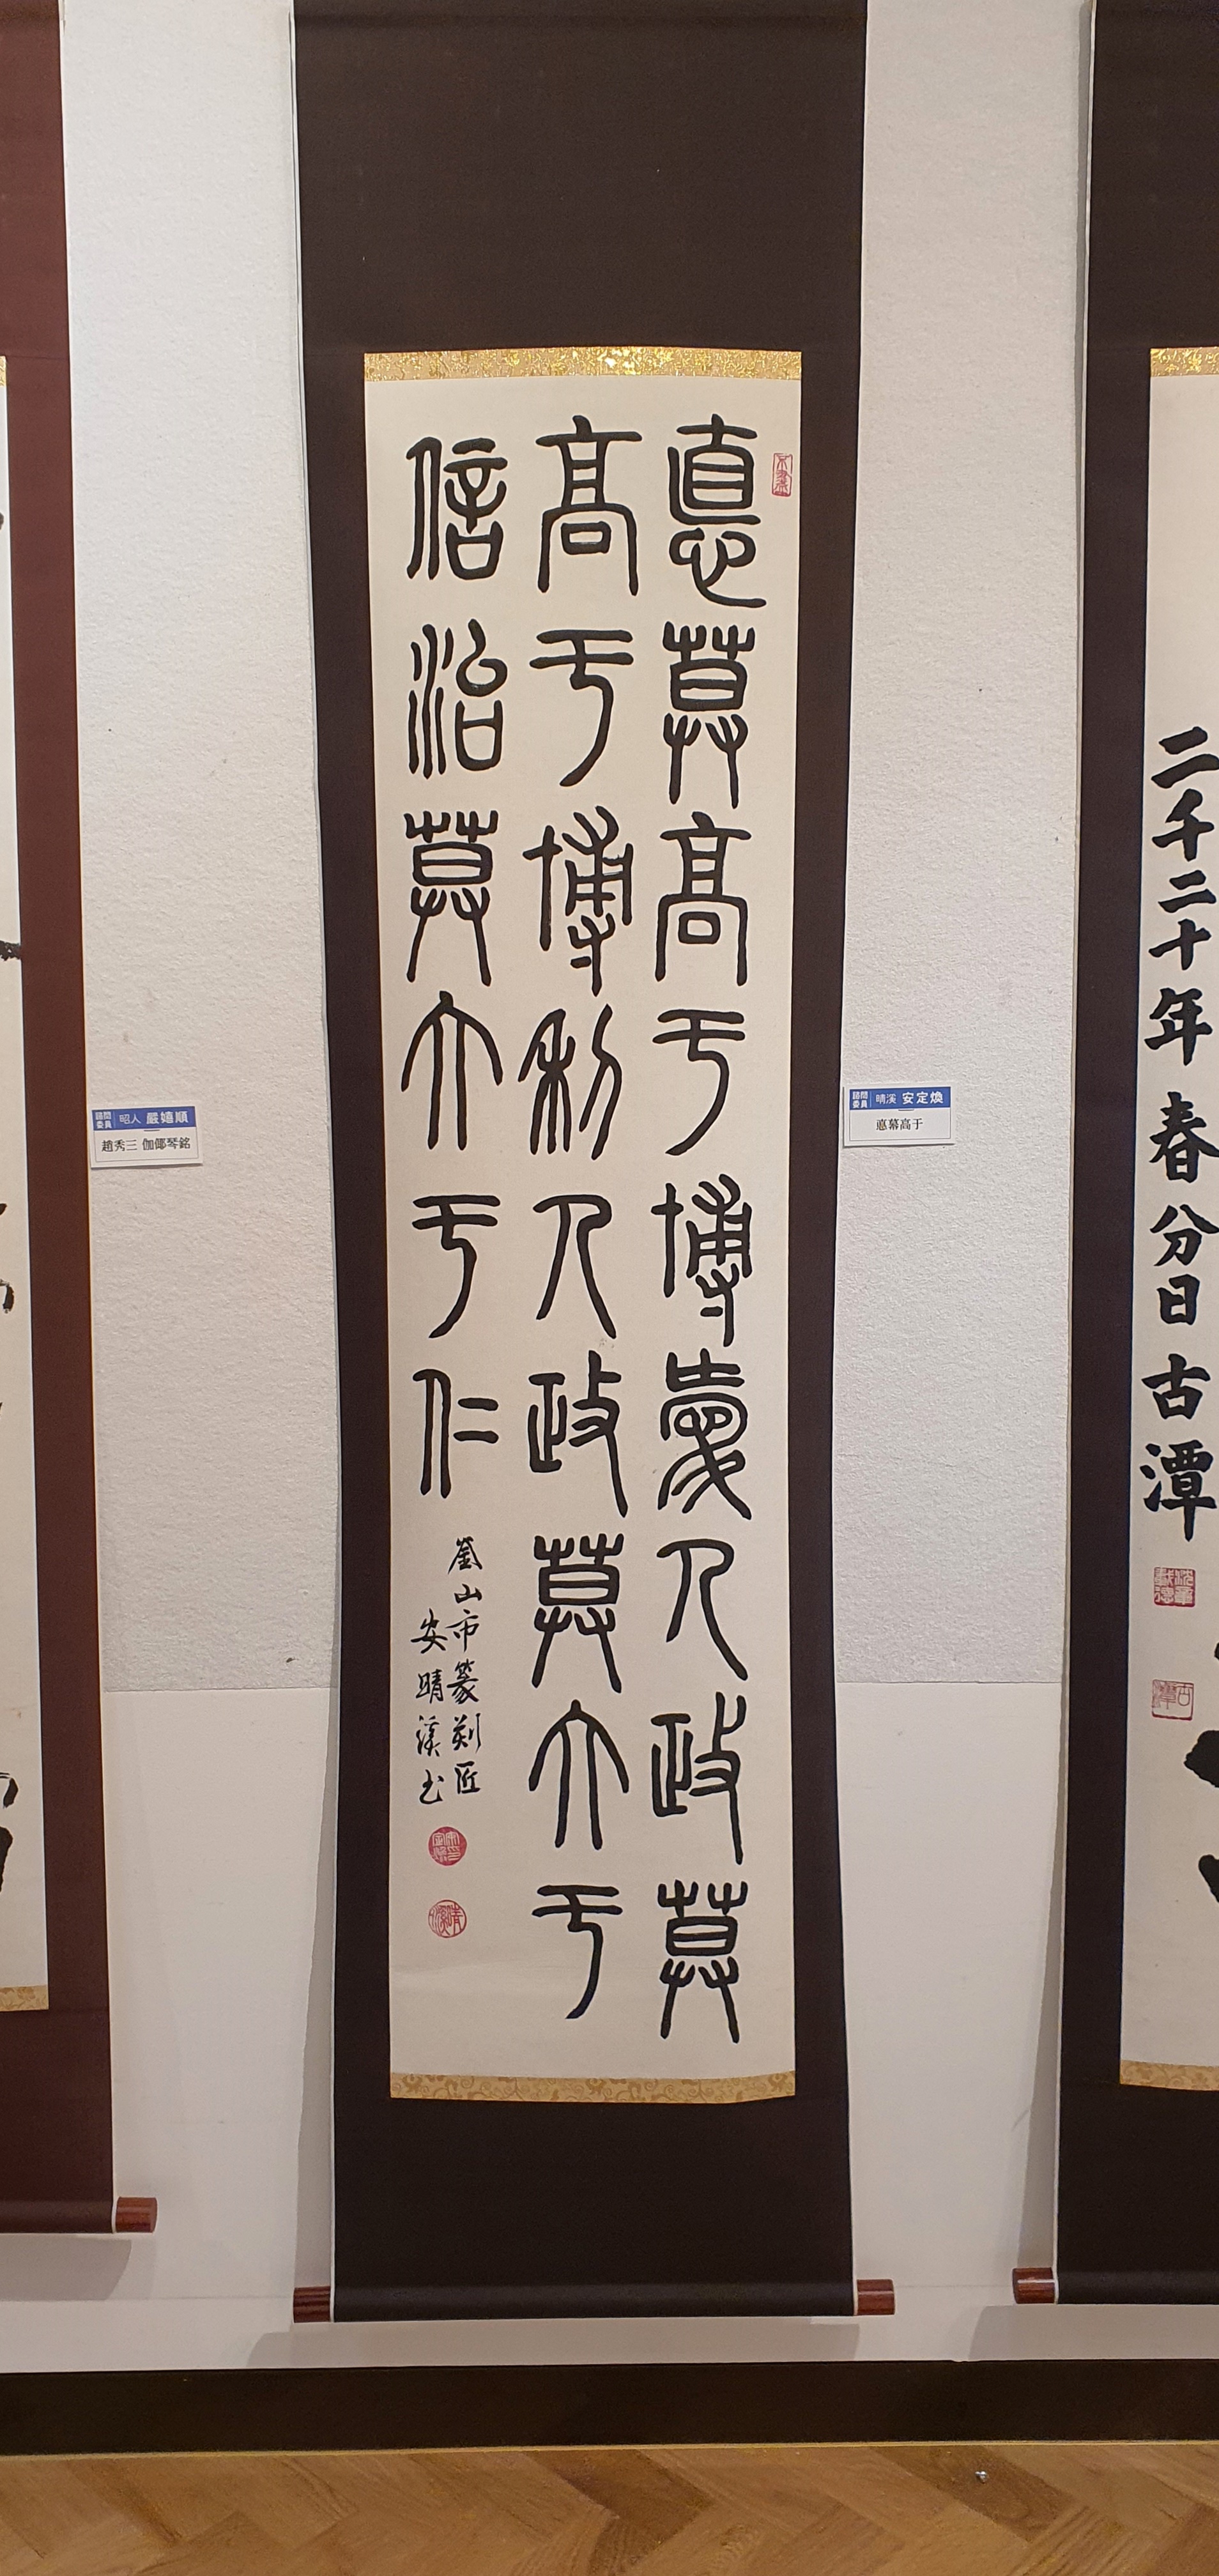 二千二十年 春分日 古潭
悳莫高于博愛人政莫
高于博利人政莫大于
信治莫大于仁
釜山市篆刻匠
安晴溪书
顧問委員 晴溪 安定煥
悳幕高于
顧問委員 昭人 嚴嬉順
趙秀三 伽倻琴銘